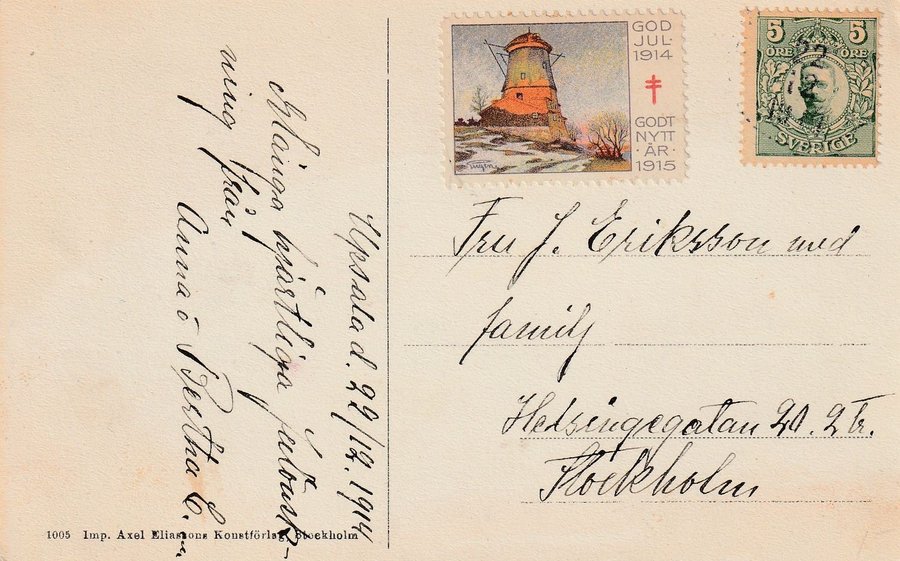 Upsala d. 22/12. 1914
Många hjärtliga julönsk-
ning från
Anna o Bertha E.
GOD
JUL
1914
GODT
NYTT
·ÅR·
1915
5 5
ÖRE ÖRE
SVERIGE
22
Fru J. Eriksson med
familj
Helsingegatan 20. 2 tr.
Stockholm
1005 Imp. Axel Eliassons Konstförlag, Stockholm